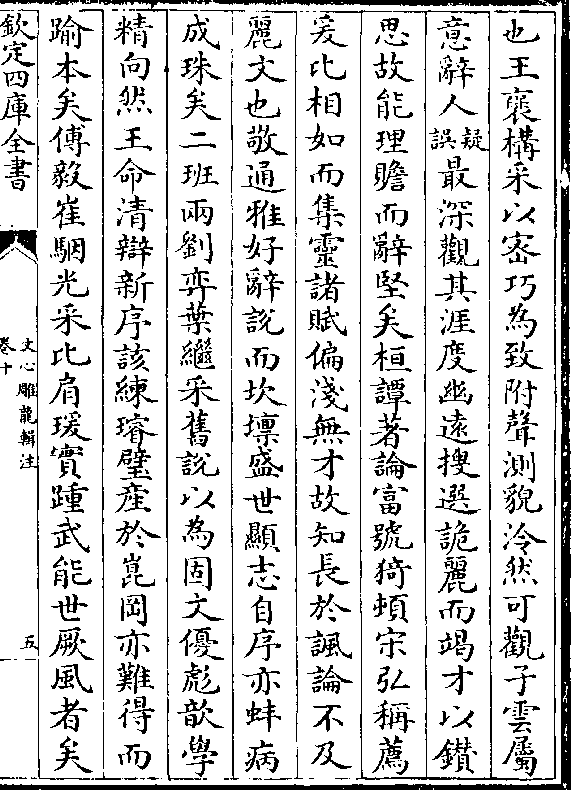 也王襃構采以宻巧為致附聲測貌泠然可觀子雲屬
意辭人疑誤最深觀其涯度幽遠搜選詭麗而竭才以鑚
思故能理贍而辭堅矣桓譚著論富號猗頓宋弘稱薦
爰比相如而集靈諸賦偏淺無才故知長於諷論不及
麗文也敬通雅好辭說而坎壈盛世顯志自序亦蚌病
成珠矣二班兩劉弈葉繼采舊說以為固文優彪歆學
精向然王命清辯新序該練璿璧産於崑岡亦難得而
踰本矣傅毅崔駰光采比肩瑗實踵武能世厥風者矣
欽定四庫全書
文心雕龍輯注
卷十
五